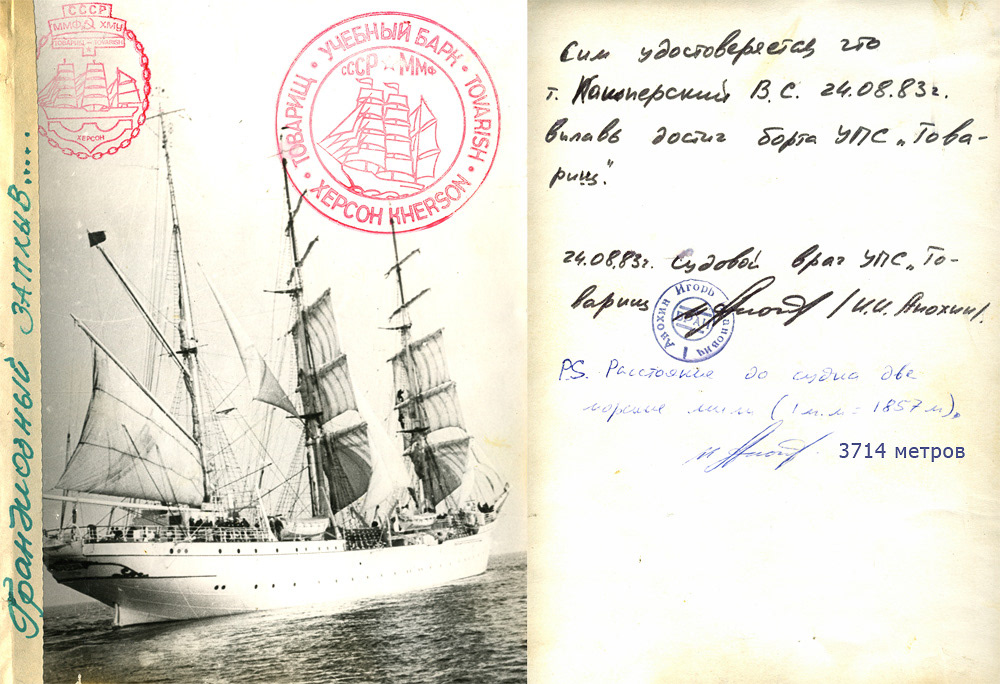 Грандиозный заплыв....
СССР
ММФ ХМУ
ТОВАРИЩ - TOVARISH
ХЕРСОН
ТОВАРИЩ • УЧЕБНЫЙ БАРК • TOVARISH • ХЕРСОН KHERSON •
СССР ММФ
Сим удостоверяется что
т. В.С. 24.08.83г.
вплавь достиг борта УПС „Това-
рищ".
24.08.83г. Судовой врач УПС „То-
варищ / И.И. Анохин/.
Анохин Игорь Иванович
ВРАЧ
P.S. Расстояние до судна две
морские мили (1 м.м = 1857 м).
3714 метров